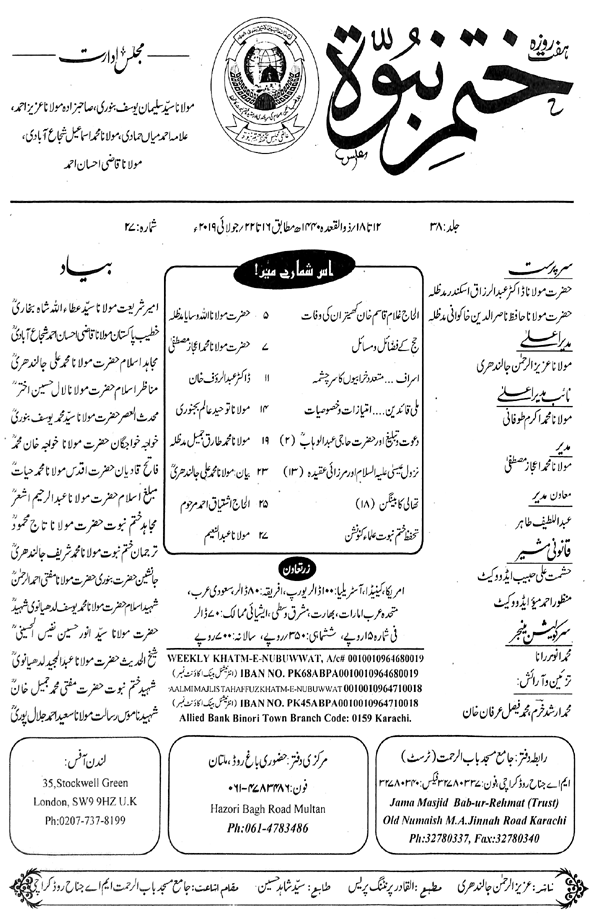 ہفت روزہ
ختم نبوۃ
مجلس
مجلس ادارت
مولانا سید سلیمان یوسف بنوری، صاحبزادہ مولانا عزیز احمد،
علامہ احمد میاں حمادی، مولانا محمد اسماعیل شجاع آبادی،
مولانا قاضی احسان احمد
جلد: ۳۸
۱۲ تا ۱۸/ذوالقعدہ ۱۴۴۰ھ مطابق ۱۶ تا ۲۲/جولائی ۲۰۱۹ء
شمارہ: ۲۷
سرپرست
حضرت مولانا ڈاکٹر عبدالرزاق اسکندر مدظلہ
حضرت مولانا حافظ ناصر الدین خاکوانی مدظلہ
مدیر اعلیٰ
مولانا عزیز الرحمٰن جالندھری
نائب مدیر اعلیٰ
مولانا محمد اکرم طوفانی
مدیر
مولانا محمد اعجاز مصطفیٰ
معاون مدیر
عبداللطیف طاہر
قانونی مشیر
حشمت علی حبیب ایڈووکیٹ
منظور احمد میؤ ایڈووکیٹ
سرکولیشن منیجر
محمد انور رانا
تزئین و آرائش:
محمد ارشد خرم، محمد فیصل عرفان خان
اس شمارے میں!
الحاج غلام قاسم خان کھیتران کی وفات ۵ حضرت مولانا اللہ وسایا مدظلہ
حج کے فضائل و مسائل ۷ حضرت مولانا محمد اعجاز مصطفیٰ
اسراف... متعدد خرابیوں کا سرچشمہ ۱۱ ڈاکٹر عبدالرؤف خان
ملی قائدین.... امتیازات و خصوصیات ۱۴ مولانا توحید عالم بجنوری
دعوت و تبلیغ اور حضرت حاجی عبدالوہابؒ (۲) ۱۹ مولانا محمد طارق جمیل مدظلہ
نزول عیسیٰ علیہ السلام اور مرزائی عقیدہ (۱۳) ۲۳ بیان: مولانا محمد علی جالندھریؒ
تھالی کا بینگن (۱۸) ۲۵ الحاج اشتیاق احمد مرحوم
تحفظ ختم نبوت علماء کنونشن ۲۷ مولانا عبدالنعیم
زرتعاون
امریکا، کینیڈا، آسٹریلیا: ۱۰۰ ڈالر یورپ، افریقہ: ۸۰ ڈالر، سعودی عرب،
متحدہ عرب امارات، بھارت، مشرق وسطیٰ، ایشیائی ممالک: ۷۰ ڈالر
فی شمارہ ۱۵ روپے، ششماہی: ۳۵۰ روپے، سالانہ: ۷۰۰ روپے
WEEKLY KHATM-E-NUBUWWAT, A/c# 0010010964680019
IBAN NO. PK68ABPA0010010964680019 (انٹرنیشنل بینک اکاؤنٹ نمبر)
AALMI MAJLIS TAHAFFUZ KHATM-E-NUBUWWAT 0010010964710018
IBAN NO. PK45ABPA0010010964710018 (انٹرنیشنل بینک اکاؤنٹ نمبر)
Allied Bank Binori Town Branch Code: 0159 Karachi.
بیاد
امیر شریعت مولانا سید عطاء اللہ شاہ بخاریؒ
خطیب پاکستان مولانا قاضی احسان احمد شجاع آبادیؒ
مجاہد اسلام حضرت مولانا محمد علی جالندھریؒ
مناظر اسلام حضرت مولانا لال حسین اخترؒ
محدث العصر حضرت مولانا سید محمد یوسف بنوریؒ
خواجہ خواجگان حضرت مولانا خواجہ خان محمدؒ
فاتح قادیان حضرت اقدس مولانا محمد حیاتؒ
مبلغ اسلام حضرت مولانا عبدالرحیم اشعرؒ
مجاہد ختم نبوت حضرت مولانا تاج محمودؒ
ترجمان ختم نبوت مولانا محمد شریف جالندھریؒ
جانشین حضرت بنوری حضرت مولانا مفتی احمد الرحمٰنؒ
شہید اسلام حضرت مولانا محمد یوسف لدھیانوی شہیدؒ
حضرت مولانا سید انور حسین نفیس الحسینیؒ
شیخ الحدیث حضرت مولانا عبدالمجید لدھیانویؒ
شہید ختم نبوت حضرت مفتی محمد جمیل خانؒ
شہید ناموس رسالت مولانا سعید احمد جلال پوریؒ
رابطہ دفتر: جامع مسجد باب الرحمت (ٹرسٹ)
ایم اے جناح روڈ کراچی، فون: ۳۲۷۸۰۳۳۷ فیکس: ۳۲۷۸۰۳۴۰
Jama Masjid Bab-ur-Rehmat (Trust)
Old Numaish M.A.Jinnah Road Karachi
Ph:32780337, Fax:32780340
مرکزی دفتر: حضوری باغ روڈ، ملتان
فون: ۰۶۱-۴۷۸۳۴۸۶
Hazori Bagh Road Multan
Ph:061-4783486
لندن آفس:
35,Stockwell Green
London, SW9 9HZ U.K
Ph:0207-737-8199
ناشر: عزیز الرحمٰن جالندھری مطبع: القادر پرنٹنگ پریس طابع: سید شاہد حسین مقام اشاعت: جامع مسجد باب الرحمت ایم اے جناح روڈ کراچی